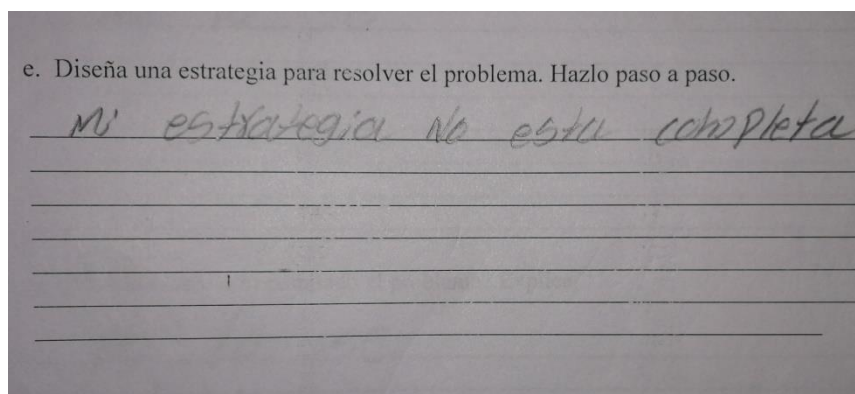 e. Diseña una estrategia para resolver el problema. Hazlo paso a paso.
Mi estrategia No esta completa